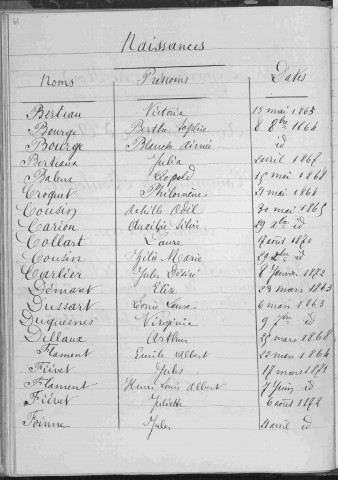 61
Naissances
Noms Prénoms Dates
Berteau Victoria 13 mai 1865
Bourge Berthe Sophie 8 8bre 1864
Bourge Blanche Aimée id
Berteaux Julia 2 avril 1867
Baleux Léopold 15 mai 1868
Croquet Philomène 21 mai 1864
Cousin Achille Odil 30 mai 1865
Carion Auxibie Silvie 29 id
Collart Laure 17 août 1870
Cousin Marie 29 id
Carlier Jules Désiré 8 Janvier 1872
Démaret Elise 23 mars 1863
Dussart Louis 6 mars 1863
Duquesnes Virginie 9 7bre id
Delleaux Arthur 25 mars 1868
Flament Emile Albert 22 mars 1864
Fiévet Jules 17 mars 1871
Flament Henri Louis Albert 7 Juin id
Fiévet Juliette 6 août 1872
Foënne Jules 21 avril id